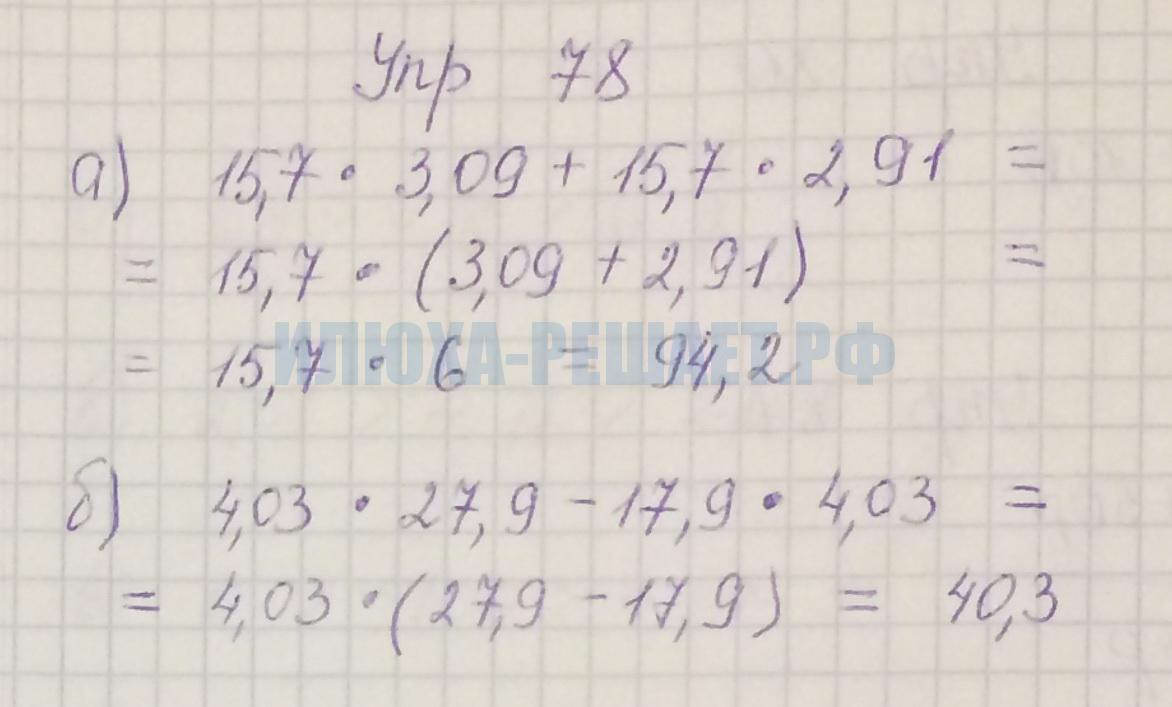 Упр 78
а) 15,7 · 3,09 + 15,7 · 2,91 =
= 15,7 · (3,09 + 2,91) =
= 15,7 · 6 = 94,2
ИЛЮХА-РЕШАЕТ.РФ
б) 4,03 · 27,9 - 17,9 · 4,03 =
= 4,03 · (27,9 - 17,9) = 40,3